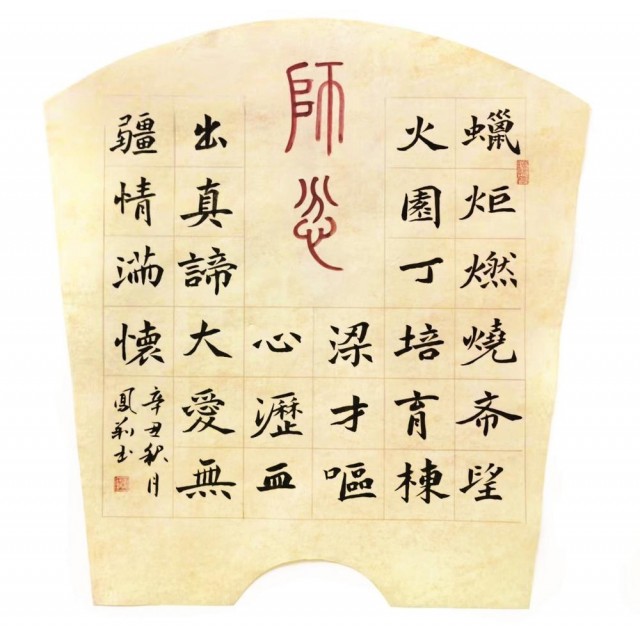 師
蠟炬燃燒希望
火園丁培育棟
梁才嘔
心瀝血
出真諦大愛無
疆情滿懷
辛丑秋月
鳳莉书